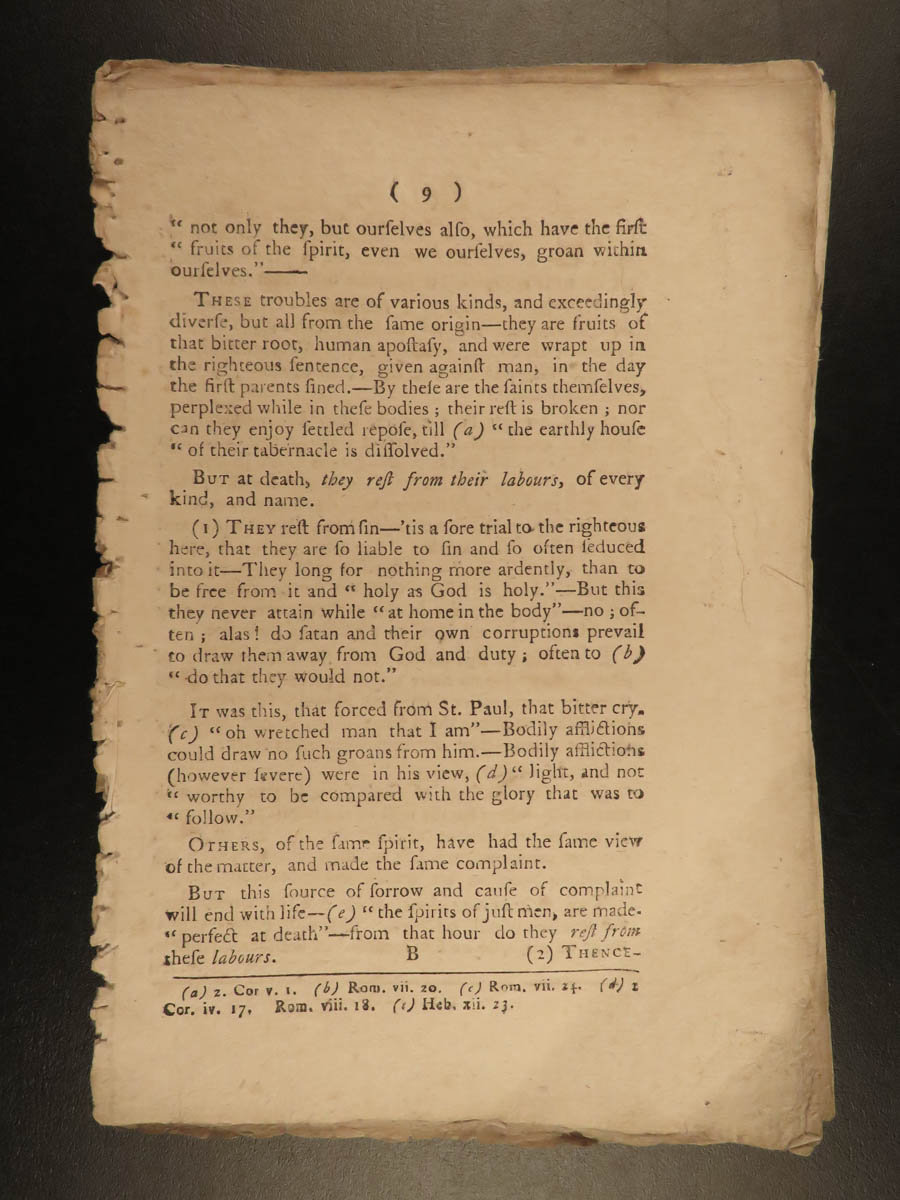 ( 9 )
“ not only they, but ourſelves alſo, which have the firſt
“ fruits of the ſpirit, even we ourſelves, groan within
ourſelves.”——
THESE troubles are of various kinds, and exceedingly
diverſe, but all from the ſame origin—they are fruits of
that bitter root, human apoſtaſy, and were wrapt up in
the righteous ſentence, given againſt man, in the day
the firſt parents ſined.—By theſe are the ſaints themſelves,
perplexed while in theſe bodies ; their reſt is broken ; nor
can they enjoy ſettled repoſe, till (a) “ the earthly houſe
“ of their tabernacle is diſſolved.”
BUT at death, they reſt from their labours, of every
kind, and name.
(1) THEY reſt from ſin—’tis a ſore trial to the righteous
here, that they are ſo liable to ſin and ſo often ſeduced
into it—They long for nothing more ardently, than to
be free from it and “ holy as God is holy.”—But this
they never attain while “ at home in the body”—no ; of-
ten ; alas! do ſatan and their own corruptions prevail
to draw them away from God and duty ; often to (b)
“ do that they would not.”
IT was this, that forced from St. Paul, that bitter cry.
(c) “ oh wretched man that I am”—Bodily afflictions
could draw no ſuch groans from him.—Bodily afflictions
(however ſevere) were in his view, (d) “ light, and not
“ worthy to be compared with the glory that was to
“ follow.”
OTHERS, of the ſame ſpirit, have had the ſame view
of the matter, and made the ſame complaint.
BUT this ſource of ſorrow and cauſe of complaint
will end with life—(e) “ the ſpirits of juſt men, are made
“ perfect at death”—from that hour do they reſt from
theſe labours. B (2) THENCE-
(a) 2. Cor v. 1. (b) Rom. vii. 20. (c) Rom. vii. 24. (d) 2
Cor. iv. 17. Rom. viii. 18. (e) Heb. xii. 23.